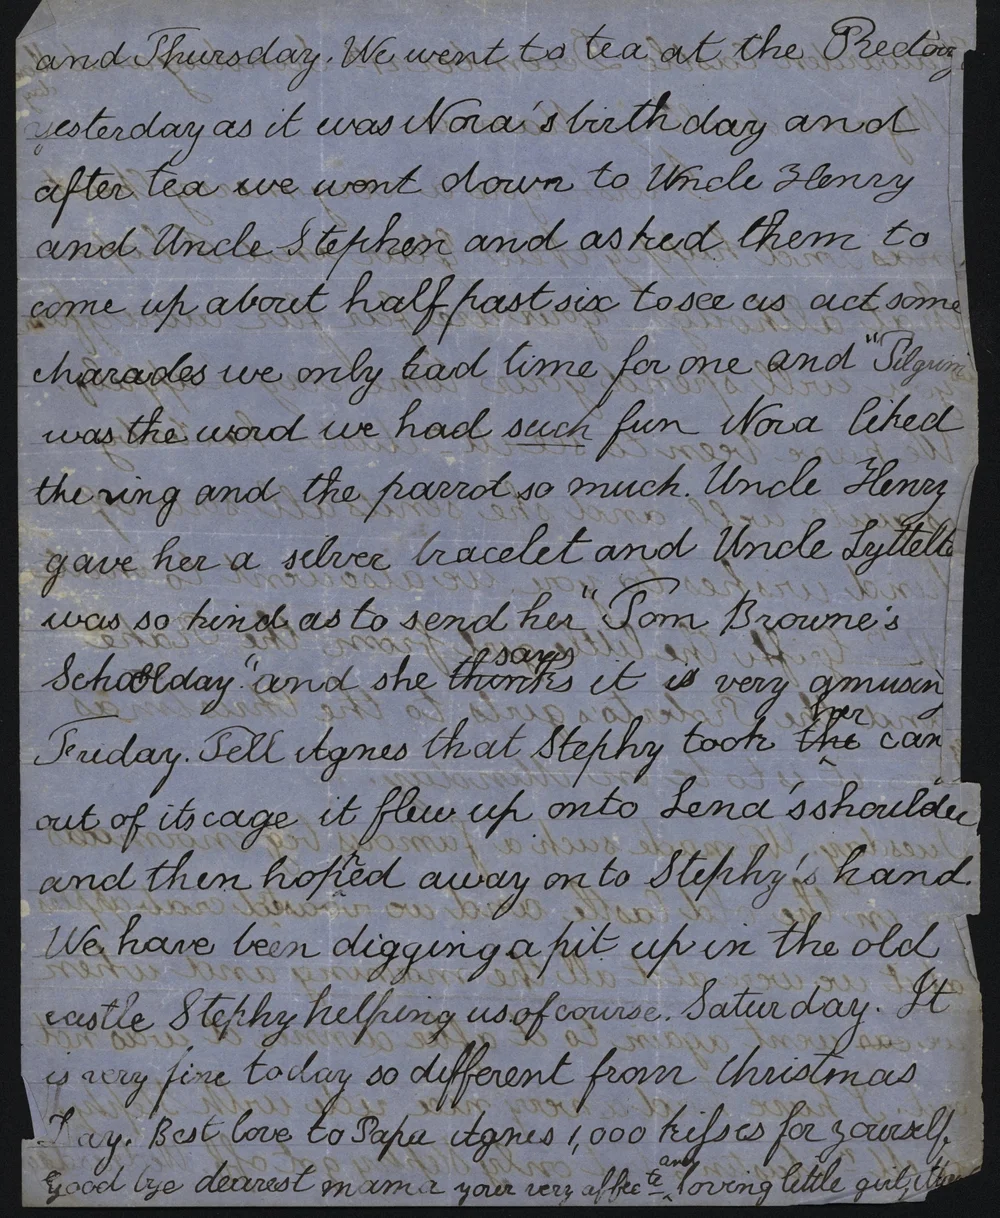 and Thursday. We went to tea at the Rectory
yesterday as it was Nora's birthday and
after tea we went down to Uncle Henry
and Uncle Stephen and asked them to
come up about half past six to see us act some
charades we only had time for one and "Pilgrim
was the word we had such fun Nora liked
the ring and the parrot so much. Uncle Henry
gave her a silver bracelet and Uncle Lyttelto
was so kind as to send her "Tom Browne's
Schoolday". and she thinks says it is very amusin
Friday. Tell Agnes that Stephy took the her can
out of its cage it flew up onto Lena's shoulder
and then hopped away on to Stephy's hand.
We have been digging a pit up in the old
castle Stephy helping us of course. Saturday. It
is very fine today so different from Christmas
Day. Best love to Papa Agnes 1,000 kisses for yourself.
Good bye dearest mama your very affecte and loving little girl